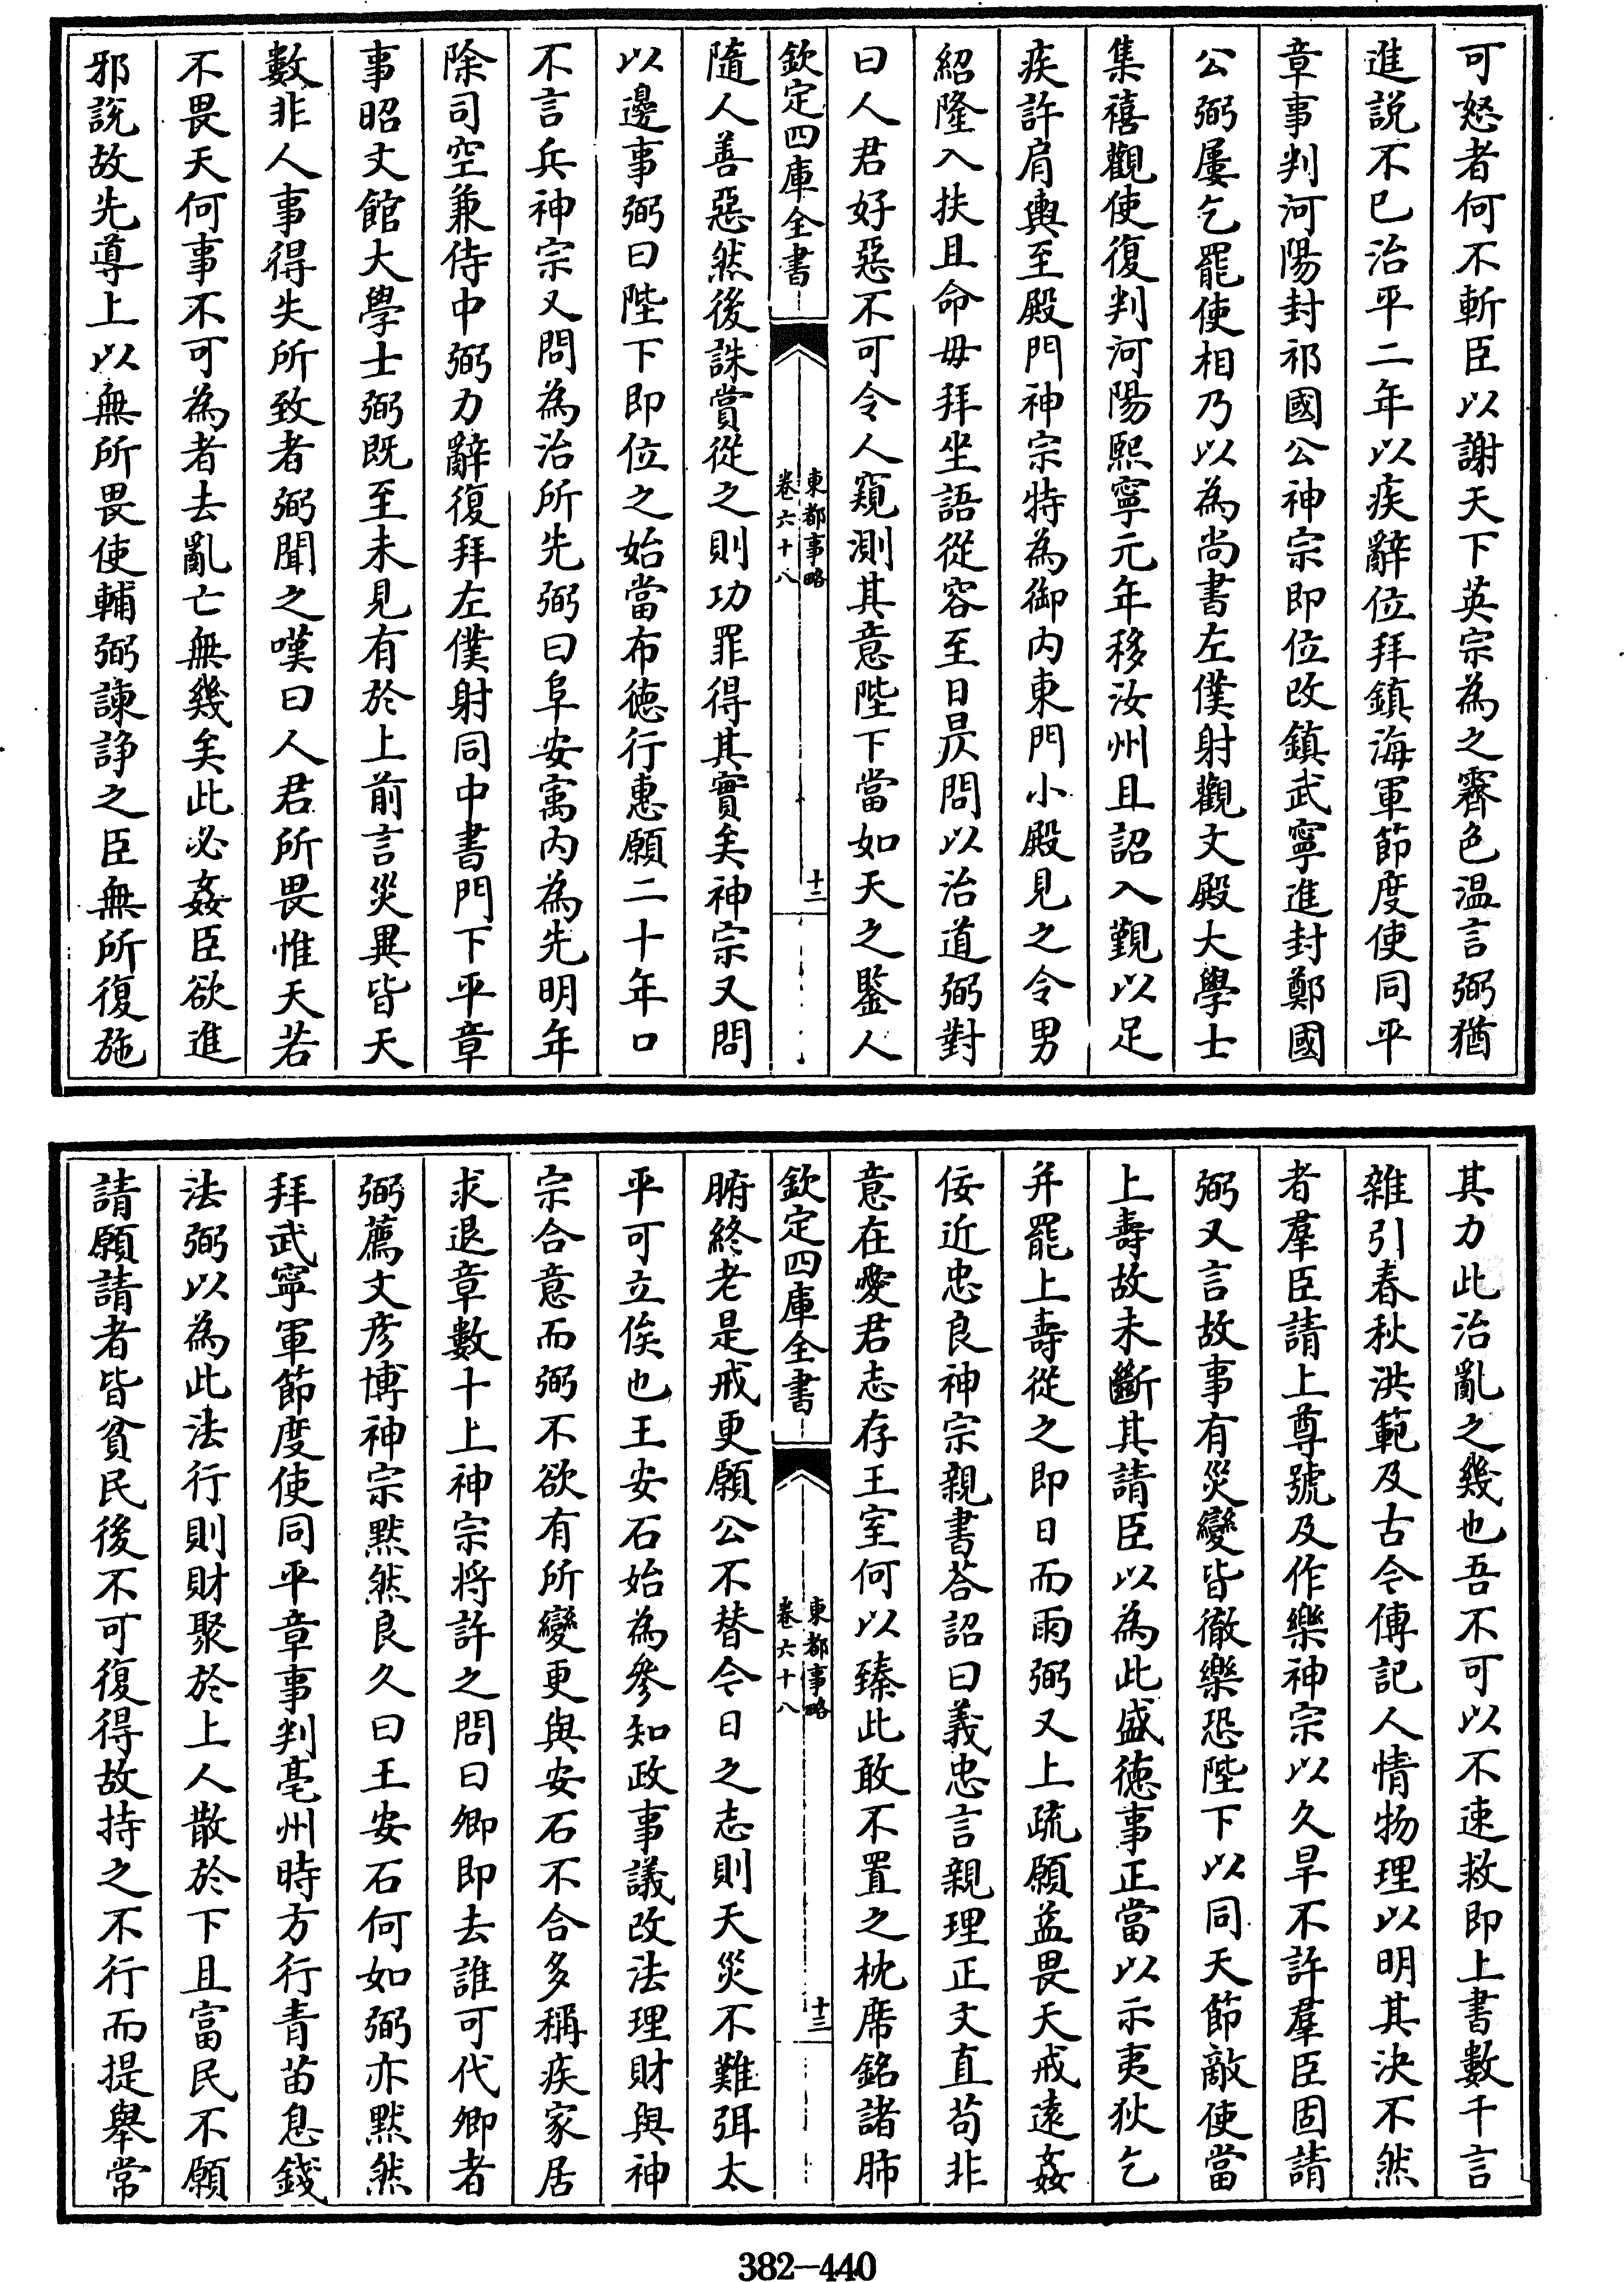 可怒者何不斬臣以謝天下英宗為之霽色溫言弼猶
進説不已治平二年以疾辭位拜鎮海軍節度使同平
章事判河陽封祁國公神宗即位改鎮武寧進封鄭國
公弼屢乞罷使相乃以為尚書左僕射觀文殿大學士
集禧觀使復判河陽熙寧元年移汝州且詔入覲以足
疾許肩輿至殿門神宗特為御内東門小殿見之令男
紹隆入扶且命毋拜坐語從容至日昃問以治道弼對
曰人君好惡不可令人窺測其意陛下當如天之鑒人
欽定四庫全書
東都事略
卷六十八
十二
隨人善惡然後誅賞從之則功罪得其實矣神宗又問
以邊事弼曰陛下即位之始當布德行惠願二十年口
不言兵神宗又問為治所先弼曰阜安㝢内為先明年
除司空兼侍中弼力辭復拜左僕射同中書門下平章
事昭文館大學士弼既至未見有於上前言災異皆天
數非人事得失所致者弼聞之嘆曰人君所畏惟天若
不畏天何事不可為者去亂亡無幾矣此必姦臣欲進
邪說故先導上以無所畏使輔弼諫諍之臣無所復施
其力此治亂之幾也吾不可以不速救即上書數千言
雜引春秋洪範及古今傳記人情物理以明其決不然
者羣臣請上尊號及作樂神宗以久旱不許羣臣固請
弼又言故事有災變皆徹樂恐陛下以同天節敵使當
上壽故未斷其請臣以為此盛德事正當以示夷狄乞
并罷上壽從之即日而雨弼又上疏願益畏天戒遠姦
佞近忠良神宗親書荅詔曰義忠言親理正文直苟非
意在愛君志存王室何以臻此敢不置之枕席銘諸肺
欽定四庫全書
東都事略
卷六十八
十三
腑終老是戒更願公不替今日之志則天災不難弭太
平可立俟也王安石始為參知政事議改法理財與神
宗合意而弼不欲有所變更與安石不合多稱疾家居
求退章數十上神宗將許之問曰卿即去誰可代卿者
弼薦文彦博神宗黙然良久曰王安石何如弼亦黙然
拜武寧軍節度使同平章事判亳州時方行青苗息錢
法弼以為此法行則財聚於上人散於下且富民不願
請願請者皆貧民後不可復得故持之不行而提舉常
382—440